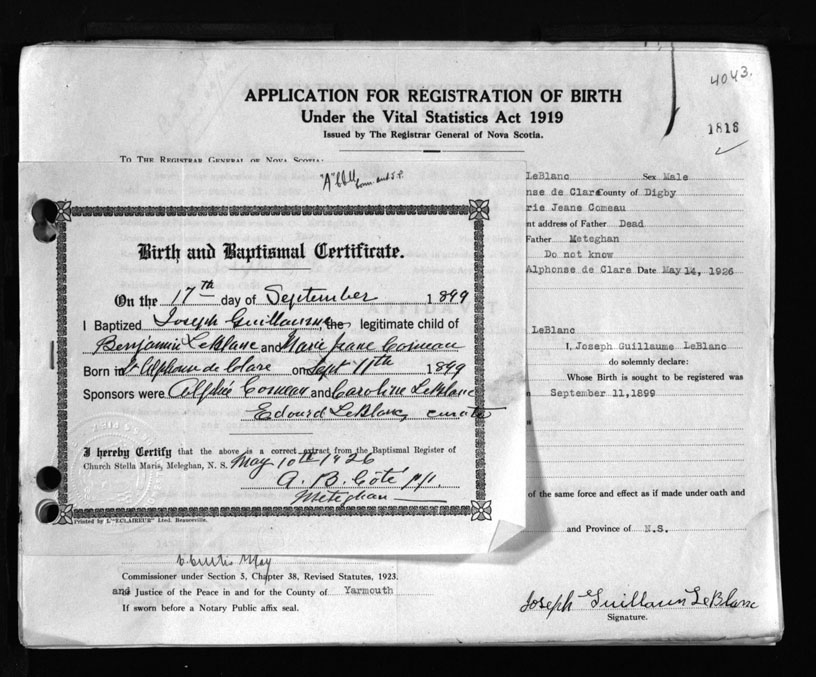 4043.
APPLICATION FOR REGISTRATION OF BIRTH
Under the Vital Statistics Act 1919
Issued by The Registrar General of Nova Scotia.
1818
TO THE REGISTRAR GENERAL OF NOVA SCOTIA:
LeBlanc Sex Male
nse de Clare County of Digby
rie Jeane Comeau
nt address of Father Dead
Father Meteghan
Do not know
Alphonse de Clare Date May 14, 1926
AFFIDAVIT
LeBlanc
I, Joseph Guillaume LeBlanc
do solemnly declare:
Whose Birth is sought to be registered was
September 11,1899
of the same force and effect as if made under oath and
and Province of N.S.
"A"
Birth and Baptismal Certificate.
On the 17th day of September 1899
I Baptized Joseph Guillaume the legitimate child of
Benjamin LeBlanc and Marie Jeane Comeau
Born in St Alphonse de Clare on Sept 11th 1899
Sponsors were Alphée Comeau and Caroline LeBlanc
Edouard LeBlanc, curate
I hereby Certify that the above is a correct extract from the Baptismal Register of
Church Stella Maris, Meteghan, N. S. May 10th 1926
A. B. Côté p.p.
Meteghan
Printed by L'"ECLAIREUR" Lted. Beauceville.
C Curtis May
Commissioner under Section 5, Chapter 38, Revised Statutes, 1923.
and Justice of the Peace in and for the County of Yarmouth
If sworn before a Notary Public affix seal.
Joseph Guillaum LeBlanc
Signature.